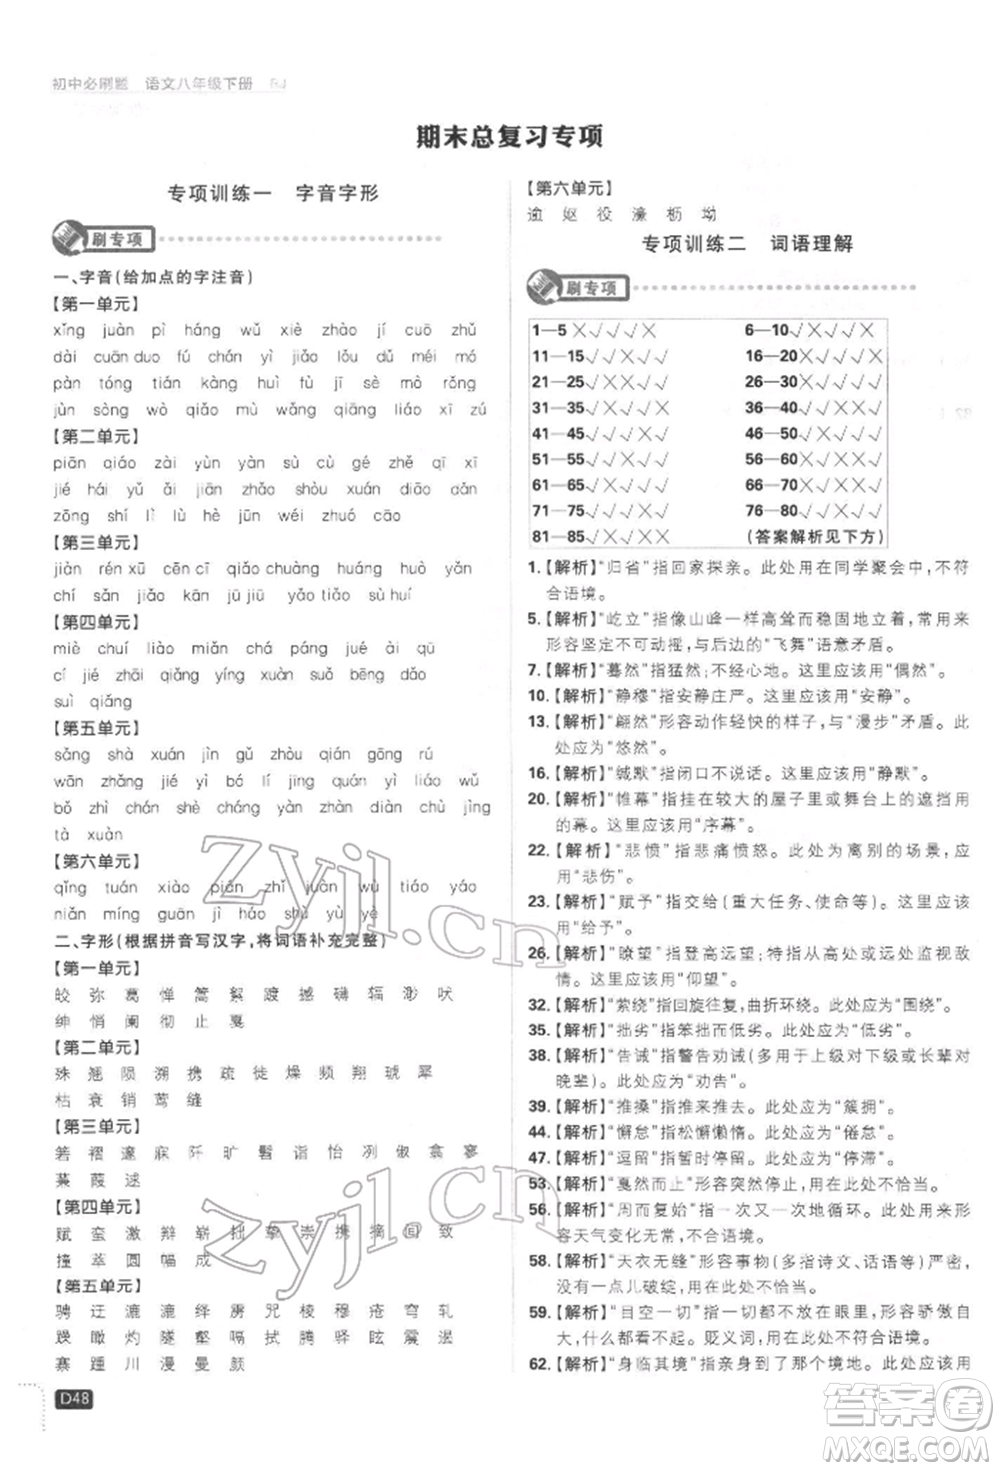 初中必刷题 语文八年级下册 RJ
期末总复习专项
专项训练一 字音字形
刷专项
一、字音(给加点的字注音)
【第一单元】
xǐng juàn pì háng wǔ xiè zhào jí cuō zhǔ
dài cuān duo fú chán yì jiǎo lǒu dǔ méi mó
pàn tóng tián kàng huì fù jī sè mò rǒng
jùn sòng wò qiǎo mù wǎng qiāng liáo xī zú
【第二单元】
piān qiáo zài yùn yàn gé zhě qī xī
jié hái yǔ ǎi jiān zhǎo shòu xuán diāo qǎn
zōng shí lì lù hè jūn wéi zhuó cāo
【第三单元】
jiàn rén xū cēn cī qiào chuàng huáng hú
chí shì zǎo zāi yǔ yāo tiǎo sù huí
【第四单元】
miè chuí liào chà há páng jué láo
cí jié zhāi qiè shàn huì bēng dǎo
suì qiǎng
【第五单元】
sǎng shà xuán jìn gǔ zhòu qián gōng rú
wān zhǎng jié yì bó lí jīng quán yì liáo wù
bǒ zhì chán shè cháng yàn zhàn diàn chù jìng
tà xuàn
【第六单元】
qǐng tuán xiào pián zhī juàn wù tiáo yáo
niǎn míng guān jì hú shù yù yè
二、字形(根据拼音写汉字,将词语补充完整)
【第一单元】
皎 弥 葛 惮 篙 絮 渡 撼 礴 辐 渺 吠
绅 悄 阑 彻 止 戛
【第二单元】
殊 翘 陨 溯 携 疏 徙 燥 频 翔 琥 犀
枯 衰 销 莺 缝
【第三单元】
箬 褶 邃 寐 阡 旷 髻 诣 怡 冽 俶 翕 寥
蒹 葭 逑
【第四单元】
赋 蛮 激 辩 崭 拙 挚 祟 携 摘 囿 致
撞 萃 圆 幅 成
【第五单元】
骋 迂 漉 漉 绎 虏 咒 棱 穆 疮 穹 轧
躁 瞰 灼 隧 壑 嗝 拭 腾 驿 眩 震 遏
寨 踵 川 漫 曼 颜
D48
【第六单元】
逾 妪 役 濠 枥 坳
专项训练二 词语理解
刷专项
1—5 ×√√√× 6—10 √×√√×
11—15 √√×√√ 16—20 ×√√√×
21—25 √××√× 26—30 ×√√√√
31—35 √×√√× 36—40 √√××√
41—45 √√√×√ 46—50 √×√√√
51—55 √√××√ 56—60 ×√××√
61—65 √×√√√ 66—70 √××√×
71—75 √×√√× 76—80 √×√×√
81—85 √×√×√ (答案解析见下方)
1.【解析】“归省”指回家探亲。此处用在同学聚会中,不符
合语境。
5.【解析】“屹立”指像山峰一样高耸而稳固地立着,常用来
形容坚定不可动摇,与后边的“飞舞”语意矛盾。
7.【解析】“蓦然”指猛然;不经心地。这里应该用“偶然”。
10.【解析】“静穆”指安静庄严。这里应该用“安静”。
13.【解析】“翩然”形容动作轻快的样子,与“漫步”矛盾。此
处应为“悠然”。
16.【解析】“缄默”指闭口不说话。这里应该用“静默”。
20.【解析】“帷幕”指挂在较大的屋子里或舞台上的遮挡用
的幕。这里应该用“序幕”。
22.【解析】“悲愤”指悲痛愤怒。此处应为离别的场景,应用
“悲伤”。
23.【解析】“赋予”指交给(重大任务、使命等)。这里应该用
“给予”。
26.【解析】“瞭望”指登高远望;特指从高处或远处监视敌
情。这里应该用“仰望”。
32.【解析】“萦绕”指回旋往复,曲折环绕。此处应为“围绕”。
35.【解析】“拙劣”指笨拙而低劣。此处应为“低劣”。
38.【解析】“告诫”指警告劝诫(多用于上级对下级或长辈对
晚辈)。此处应为“劝告”。
39.【解析】“推搡”指推来推去。此处应为“簇拥”。
44.【解析】“懈怠”指松懈懒惰。此处应为“倦怠”。
47.【解析】“逗留”指暂时停留。此处应为“停滞”。
54.【解析】“戛然而止”形容突然停止,此处应用“溘然”。
56.【解析】“周而复始”指一次又一次地循环。本句是为了
形容天气变化无常,不合语境。
58.【解析】“天衣无缝”形容事物(多指诗文、话语等)严密,
没有一点儿破绽,用在此处不恰当。
59.【解析】“目空一切”指一切都不放在眼里,形容骄傲自
大,什么都看不起。贬义词,用在此处不符合语境。
62.【解析】“身临其境”指亲身到了那个境地。此处应该用
Zyjl.cn
zyjl.cn
答案圈
MXQE.COM